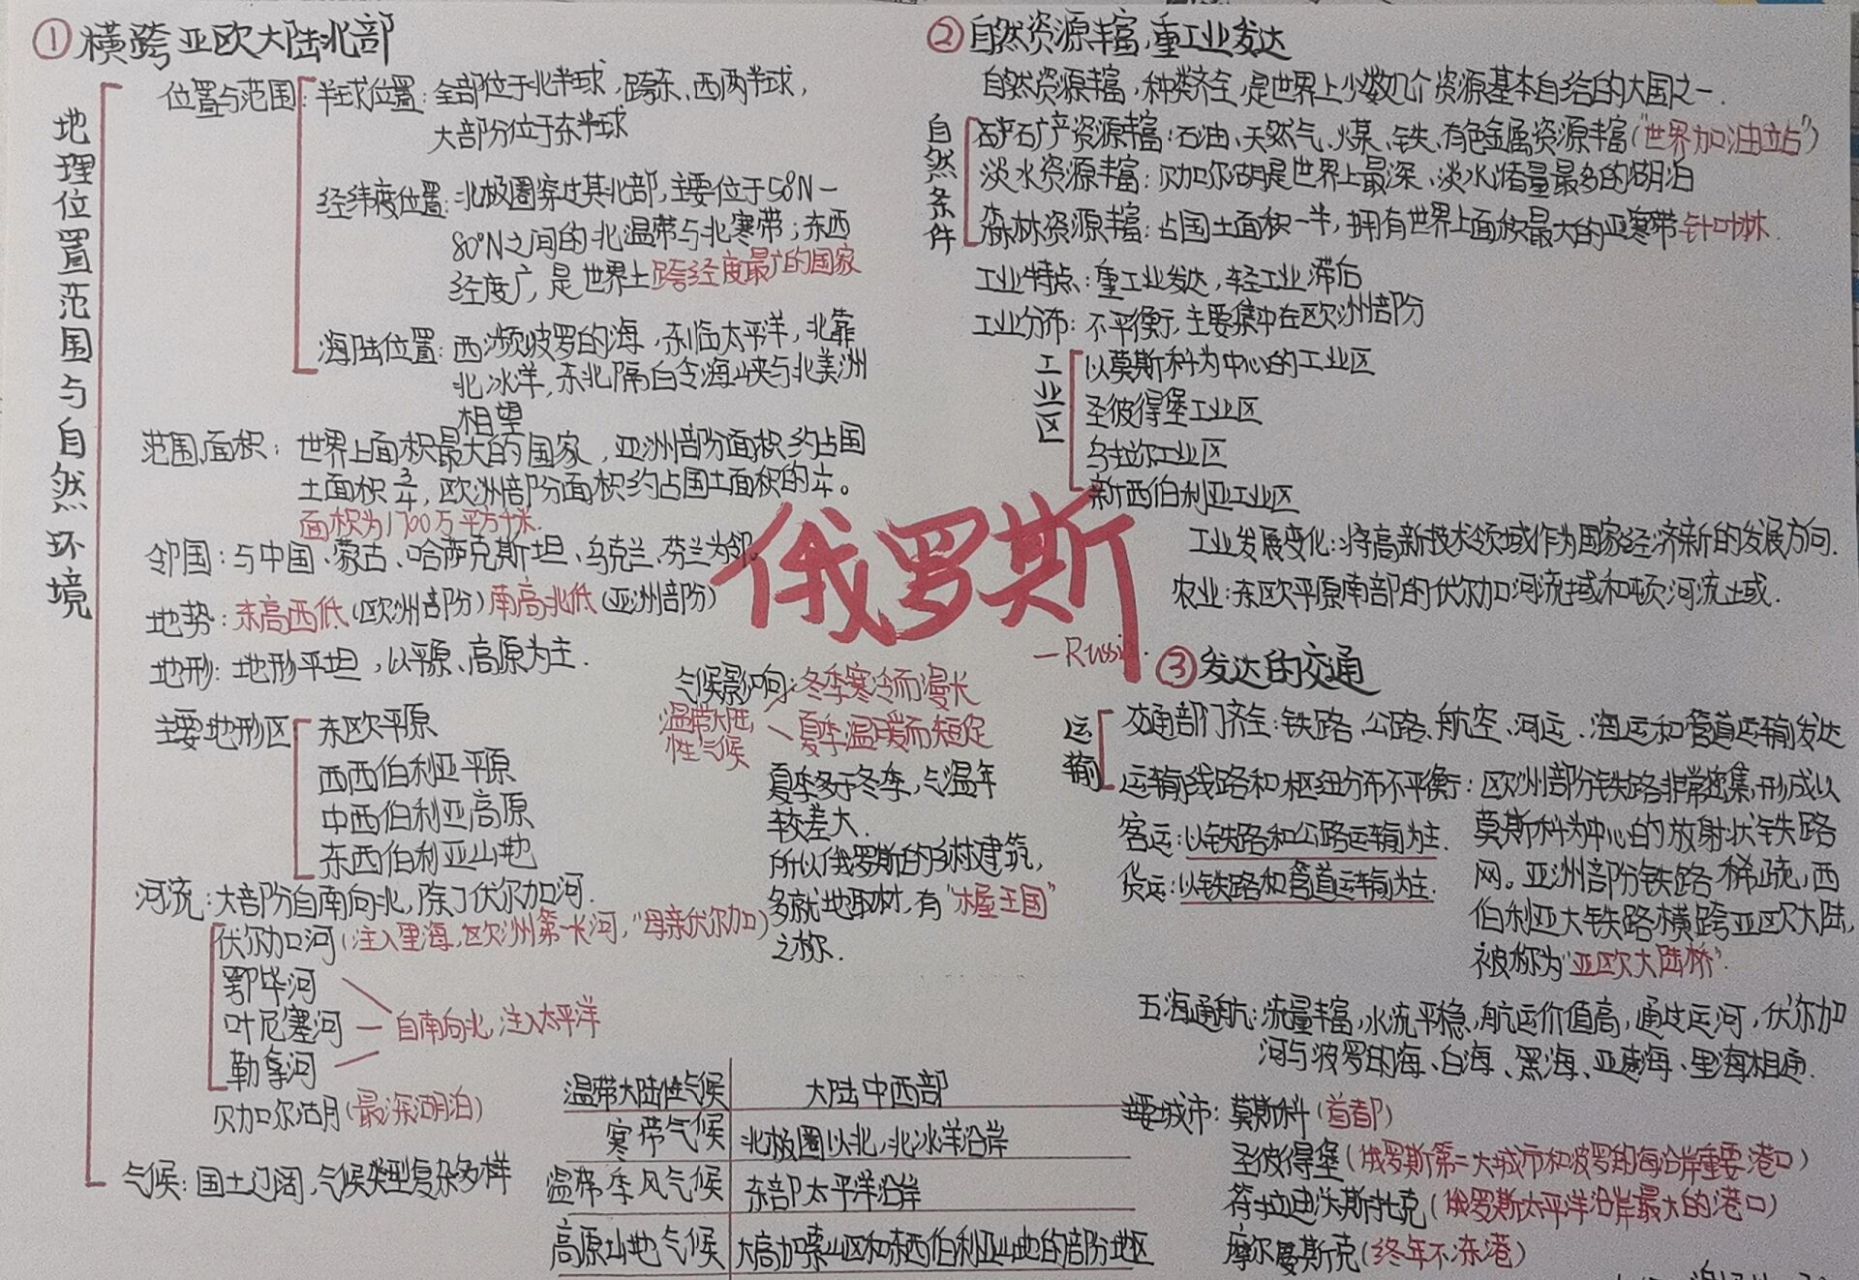 ①横跨亚欧大陆北部
地理位置范围与自然环境
位置与范围:
半球位置:全部位于北半球,跨东、西两半球,
大部分位于东半球
经纬度位置:北极圈穿过其北部,主要位于50°N-
80°N之间的北温带与北寒带;东西
经度广,是世界上跨经度最广的国家
海陆位置:西濒波罗的海,东临太平洋,北靠
北冰洋,东北隔白令海峡与北美洲
相望
范围、面积:世界上面积最大的国家,亚洲部分面积约占国
土面积,欧洲部分面积约占国土面积的。
面积为1700万平方千米.
邻国:与中国、蒙古、哈萨克斯坦、乌克兰、芬兰为邻。
地势:东高西低(欧洲部分)南高北低(亚洲部分)
地形:地形平坦,以平原、高原为主.
主要地形区
东欧平原
西西伯利亚平原
中西伯利亚高原
东西伯利亚山地
河流:大部分自南向北,除了伏尔加河.
伏尔加河(注入里海,欧洲第一长河,"母亲伏尔加)
鄂毕河
叶尼塞河—自南向北,注入太平洋
勒拿河
贝加尔湖(最深湖泊)
气候:国土辽阔,气候类型复杂多样
俄罗斯
—Russi
气候影响:冬季寒冷而漫长
温带大陆性气候
夏季温暖而短促
夏季多于冬季,气温年
较差大.
所以俄罗斯的乡村建筑,
多就地取材,有"木屋王国"
之称.
温带大陆性气候 大陆中西部
寒带气候 北极圈以北,北冰洋沿岸
温带季风气候 东部太平洋沿岸
高原山地气候 大高加索山区和东西伯利亚山地的部分地区
②自然资源丰富,重工业发达
自然资源丰富,种类齐全,是世界上少数几个资源基本自给的大国之一.
自然条件
矿产资源丰富:石油、天然气、煤、铁、有色金属资源丰富("世界加油立占")
淡水资源丰富:贝加尔湖是世界上最深、淡水储量最多的湖泊
森林资源丰富:占国土面积一半,拥有世界上面积最大的亚寒带针叶林.
工业特点:重工业发达,轻工业滞后
工业分布:不平衡,主要集中在欧洲部分
工业区
以莫斯科为中心的工业区
圣彼得堡工业区
乌拉尔工业区
新西伯利亚工业区
工业发展变化:将高新技术领域作为国家经济新的发展方向.
农业:东欧平原南部的伏尔加河流域和顿河流域.
③发达的交通
运输
交通部门齐全:铁路、公路、航空、河运、海运和管道运输发达
运输线路和枢纽分布不平衡:欧洲部分铁路非常密集,形成以
莫斯科为中心的放射状铁路
网。亚洲部分铁路稀疏,西
伯利亚大铁路横跨亚欧大陆,
被称为"亚欧大陆桥".
客运:以铁路和公路运输为主.
货运:以铁路和管道运输为主.
五海通航:流量丰富,水流平稳,航运价值高,通过运河,伏尔加
河与波罗的海、白海、黑海、亚速海、里海相通.
主要城市:莫斯科(首都)
圣彼得堡(俄罗斯第二大城市和波罗的海沿岸重要港口)
符拉迪沃斯托克(俄罗斯太平洋沿岸最大的港口)
摩尔曼斯克(终年不冻港)